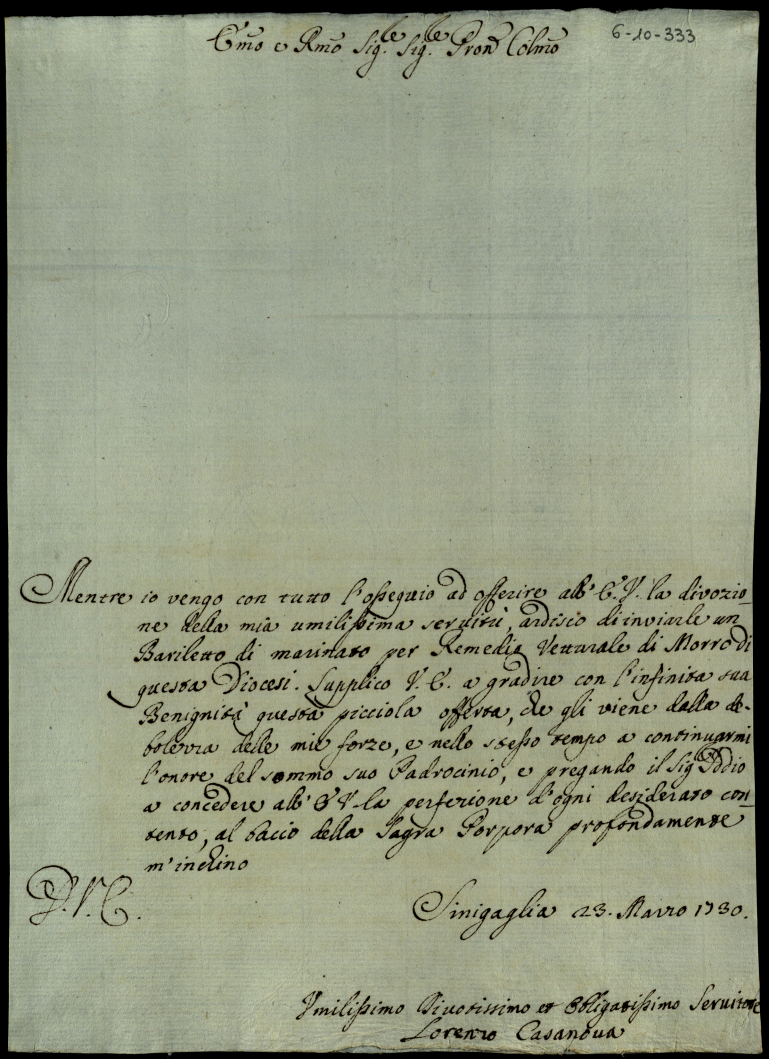 6-10-333
Emo e Rmo Sig.le Sig.le Pron Colmo
Mentre io vengo con tutto l'ossequio ad offerire all' E.V. la divozio-
ne della mia umilissima servitù, ardisco di inviarle un
Bariletto di marinato per Remedio Vetturale di Morro di
questa Diocesi. Supplico V.E. a gradire con l'infinita sua
Benignità questa picciola offerta, che gli viene dalla de-
bolezza delle mie forze, e nello stesso tempo a continuarmi
l'onore del sommo suo Padrocinio, e pregando il Sig Iddio
a concedere all' E V. la perfezione d'ogni desiderato con-
tento, al baccio della Sagra Porpora profondamente
m'inchino
D.V.E.
Sinigaglia 23. Marzo 1730.
Vmilissimo Divotissimo et Obligatissimo Servitore
Lorenzo Casanova